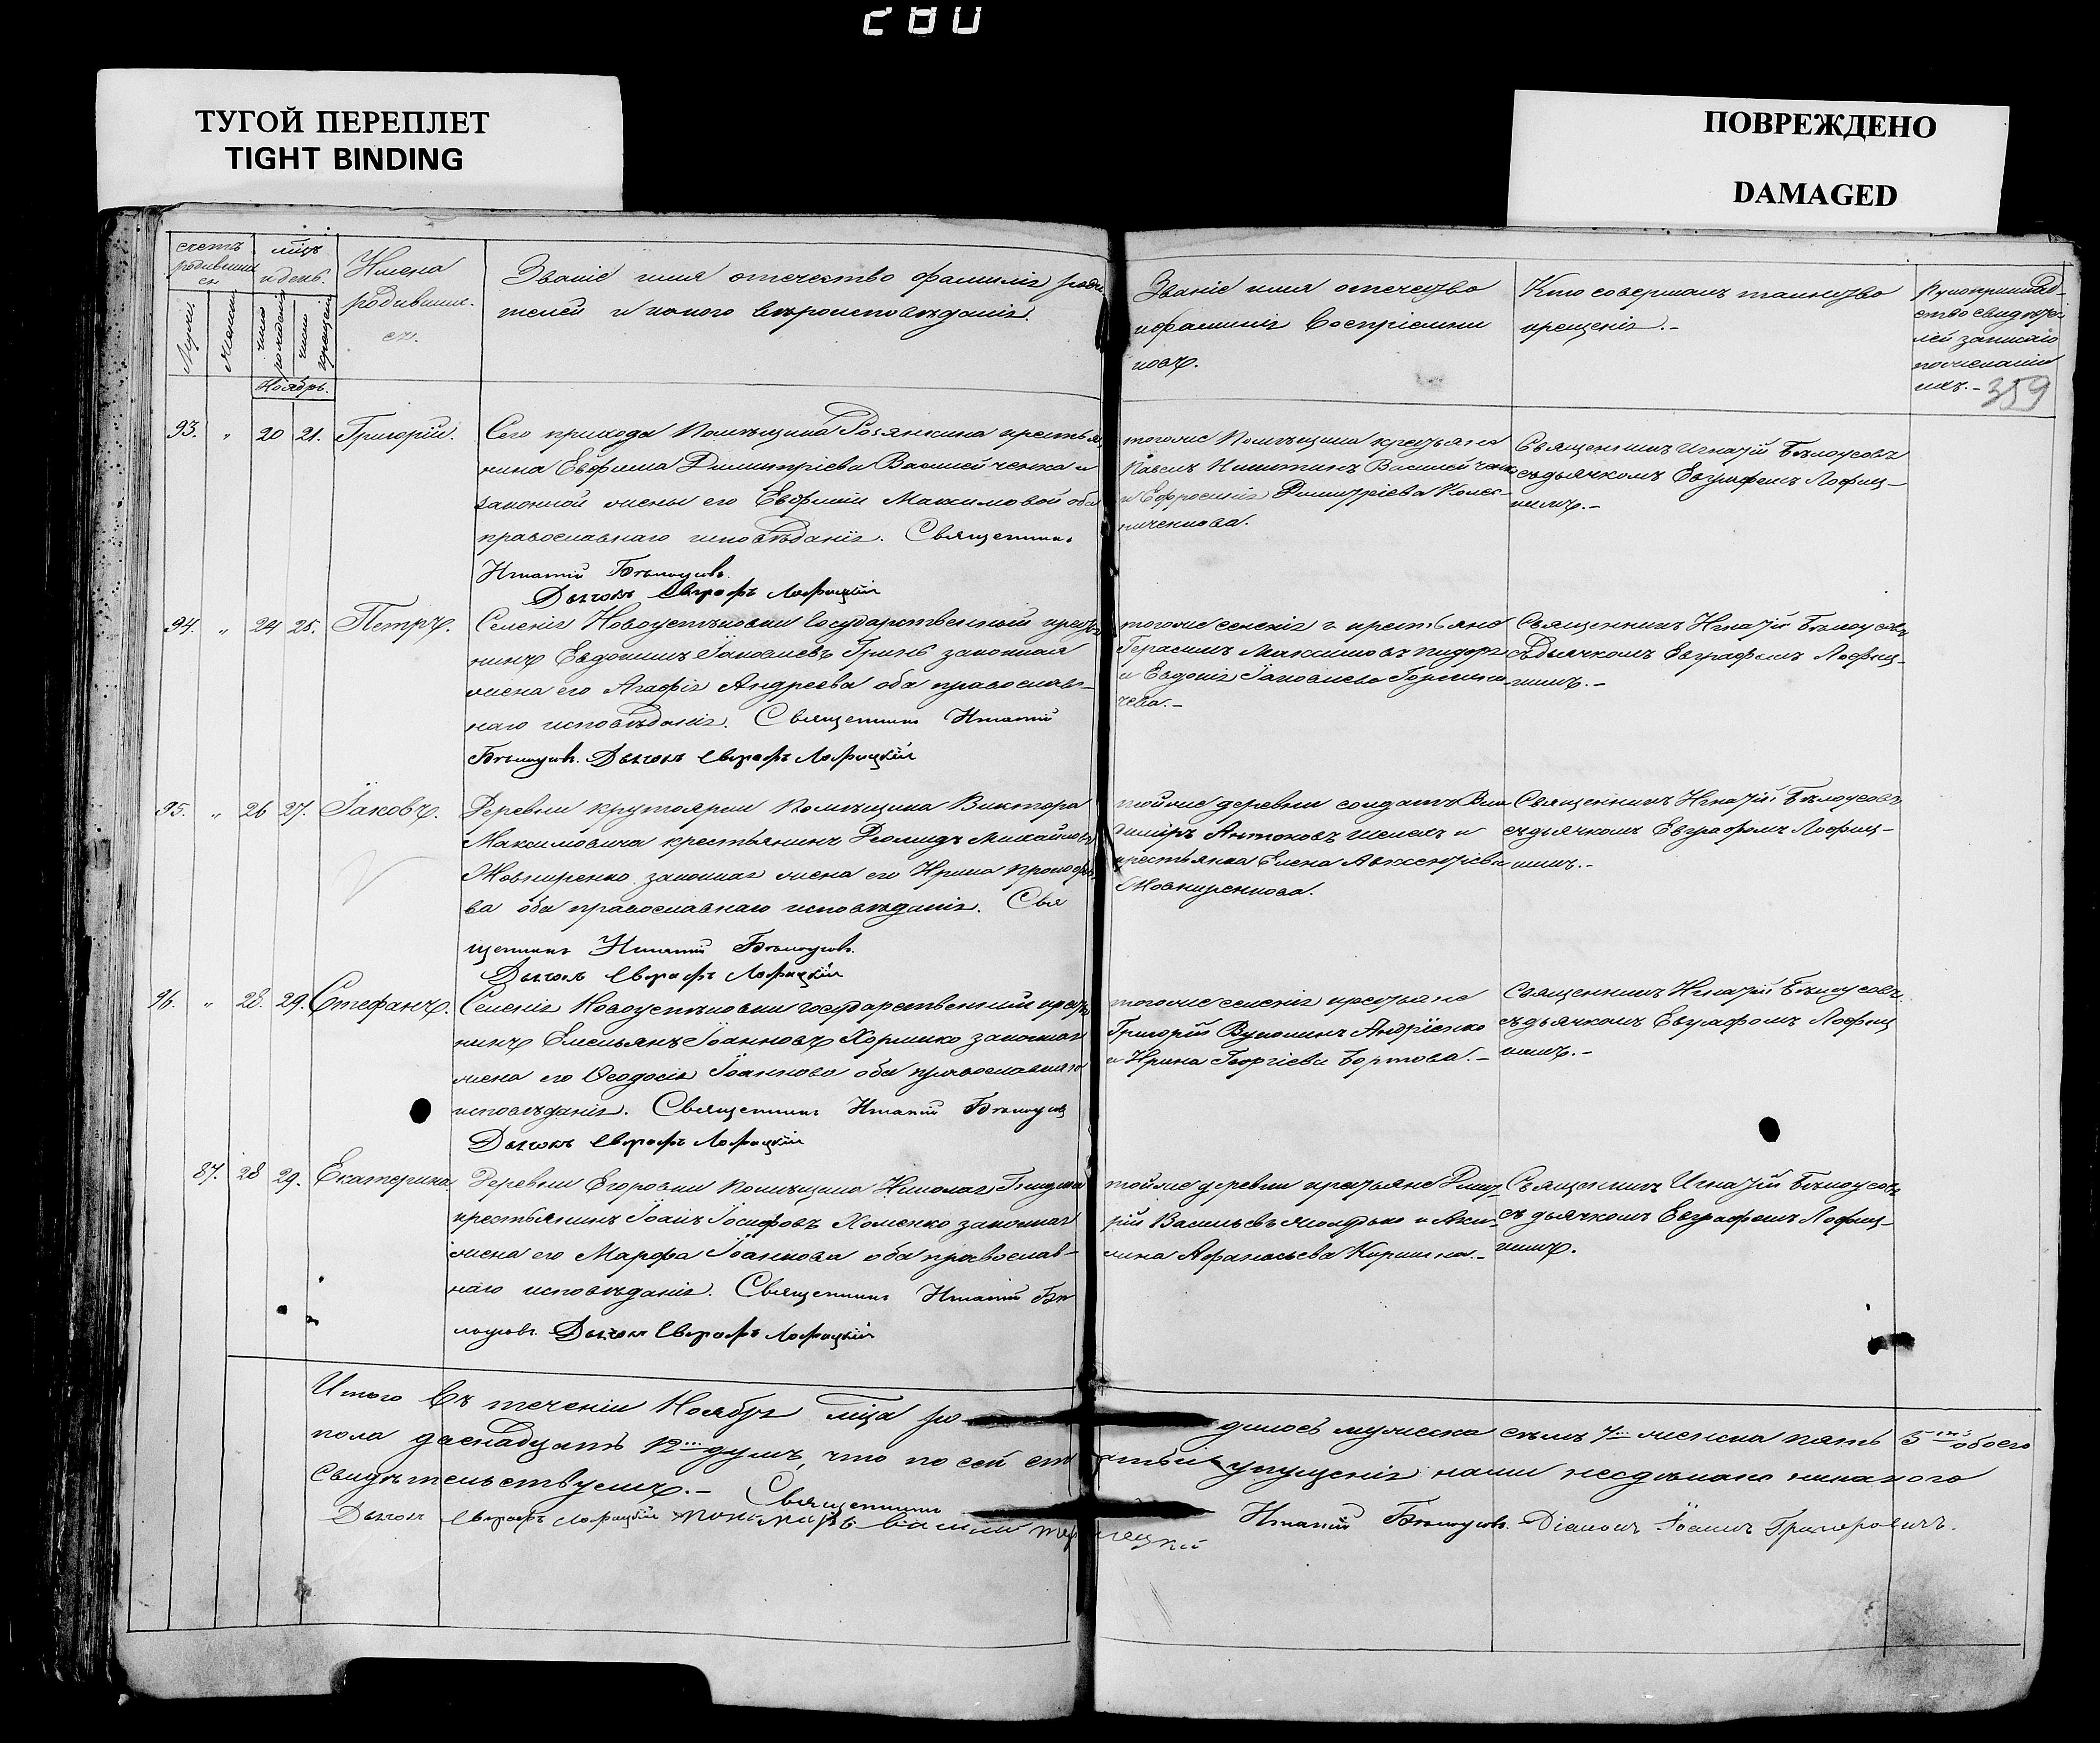 280
ТУГОЙ ПЕРЕПЛЕТ
TIGHT BINDING
ПОВРЕЖДЕНО
DAMAGED
счетъ
родивших
ся
мца
и день
Имена
родивших
ся.
Званіе имя отечество фамилія роди
телей и какого вѣроисповѣданія.
Ноябрь.
Званіе имя отечество
и фамилія воспріемни
ковъ.
Кто совершалъ таинство
крещенія.-
359
93. " 20 21. Григорій.
Сего прихода помѣщика Родзянкина крестья
нина Евфима Димитріева Василейченка и
законной жены его Евфиміи Максимовой оба
православнаго исповѣданія. Священникъ
Игнатій Бѣлоусовъ
Дьячокъ Евграфъ Лофицкій
тогоже помѣщика крестьяне
Павелъ Никитинъ Василейченко
и Ефросинія Димитріева Колес-
ниченкова.
Священникъ Игнатій Бѣлоусовъ
съ дьячкомъ Евграфомъ Лофиц-
кимъ.-
94. " 24 25. Петръ.
Селенія Новоустиновки государственный крестья
нинъ Евдокимъ Іаковлевъ Гринь законная
жена его Агафія Андреева оба православ-
наго исповѣданія. Священникъ Игнатій
Бѣлоусовъ. Дьячокъ Евграфъ Лофицкій
тогоже селенія г. крестьяне
Герасимъ Максимовъ
и Евдокія Іаковлева
чева.-
Священникъ Игнатій Бѣлоусовъ
съ дьячкомъ Евграфомъ Лофиц-
кимъ.-
95. " 26 27. Іаковъ.
Деревни Крутояреи помѣщика Виктора
Максимовича крестьянинъ Деомидъ Михайловъ
Жовниренко законная жена его Ирина Прокофіе
ва оба православнаго исповѣданія. Свя
щенникъ Игнатій Бѣлоусовъ.
Дьячокъ Евграфъ Лофицкій
тойже деревни солдатъ Вла
димиръ Антоновъ и
крестьянка Елена Авксентіева
Жовниренкова.
Священникъ Игнатій Бѣлоусовъ
съ дьячкомъ Евграфомъ Лофиц-
кимъ.-
96. " 28. 29. Стефанъ.
Селенія Новоустиновки государственный крестья
нинъ Емельянъ Іоанновъ Хоришко законная
жена его Ѳеодосія Іоаннова оба православнаго
исповѣданія. Священникъ Игнатій Бѣлоусовъ
Дьячокъ Евграфъ Лофицкій
тогоже селенія крестьяне
Григорій Андріенко
и Ирина Георгіева Бортова.-
Священникъ Игнатій Бѣлоусовъ
съ дьячкомъ Евграфомъ Лофиц
кимъ.-
87. 28 29. Екатерина.
Деревни Егоровки помѣщика Николая Гнидина
крестьянинъ Іоаннъ Іосифовъ Хоменко законная
жена его Марфа Іоаннова оба православ-
наго исповѣданія. Священникъ Игнатій Бѣ
лоусовъ. Дьячокъ Евграфъ Лофицкій
тойже деревни крестьяне Димит-
рій Васильевъ и Аки-
лина Афанасьева
Священникъ Игнатій Бѣлоусовъ
съ дьячкомъ Евграфомъ Лофиц-
кимъ.
Итого въ теченіи Ноября мца ро дилось мужеска семъ 7 женска пять 5 обоего
пола двенадцать 12 душъ, что по сей статьи упущенія нами несдѣлано никакого
Свидѣтельствуемъ.- Священникъ Игнатій Бѣлоусовъ. Діаконъ Іоаннъ Григоровичъ.
Дьячокъ Евграфъ Лофицкій Пономарь Василій